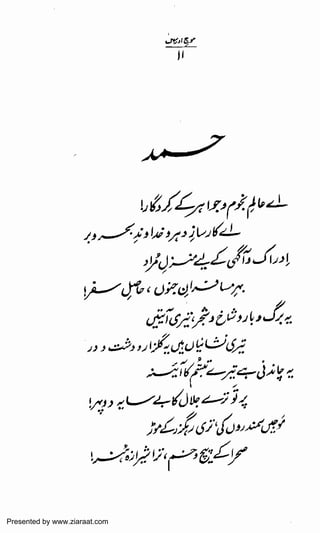 موج ادراک
۱۱
حمد
اے عالمِ نجوم و جواہر کے کردگار!
اے کارسازِ دہر و خداوندِ بحر و بر
اِدراک و آگہی کے لیے منزلِ مُراد
بہرِ مسافرانِ جنوں، حاصلِ سفر!
یہ برگ و بار و شاخ و شجر، تیری آیتیں
تیری نشانیاں ہیں یہ گلزار و دشت و در
یہ چاندنی ہے تیرے تبسّم کا آئینہ
پرتَو ترے جلال کا بے سایہ دوپہر!
مَوجیں سمندروں کی، تری رہگزر کے موڑ
صحرا کے پیچ و خم، ترا شیرازۂ ہُنر!
Presented by www.ziaraat.com